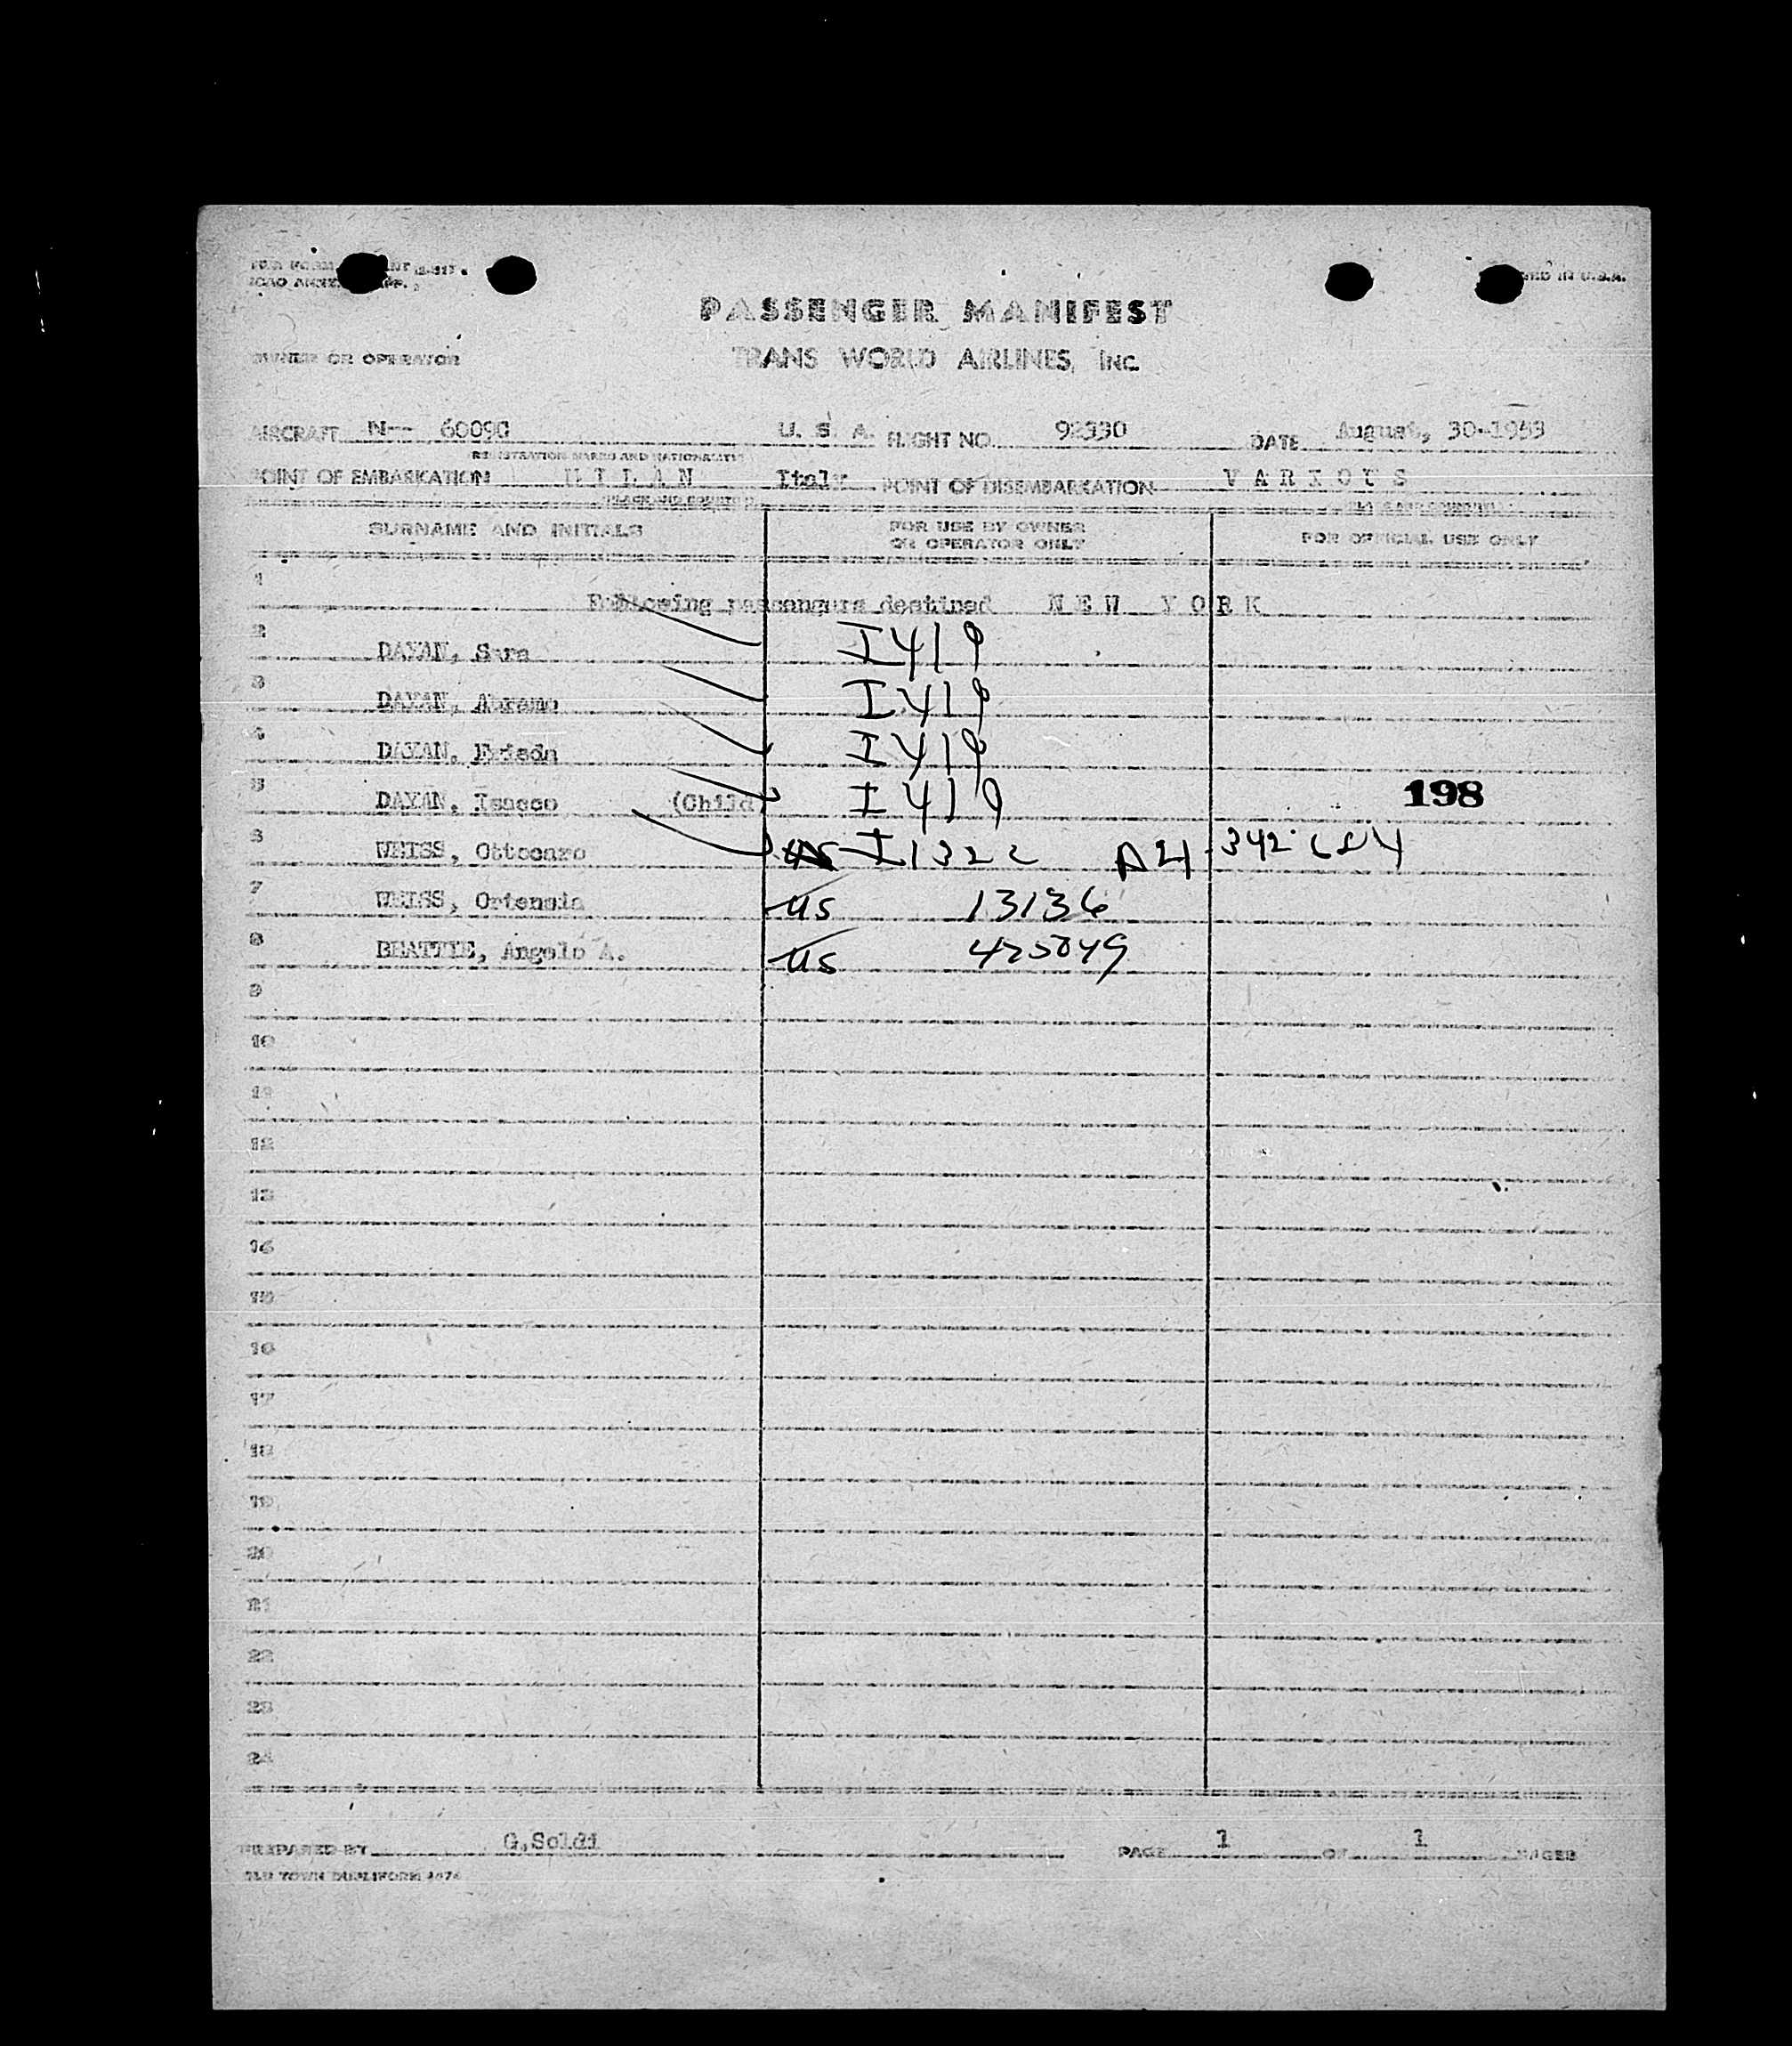 PASSENGER MANIFEST
OWNER OR OPERATOR TRANS WORLD AIRLINES, INC.
AIRCRAFT N-- 60090 U. S. A. FLIGHT NO. 92330 DATE August, 30-1953
REGISTRATION MARKS AND NATIONALITY
POINT OF EMBARKATION MILAN Italy POINT OF DISEMBARKATION VARIOUS
SURNAME AND INITIALS FOR USE BY OWNER OR OPERATOR ONLY FOR OFFICIAL USE ONLY
1 Following passengers destined NEW YORK
2 DAYAN, Sara I 419
3 DAYAN, Abramo I 419
4 DAYAN, Frieda I 419
5 DAYAN, Isacco (Child) I 419
198
6 WEISS, Ottocaro I 1322
7 WEISS, Ortensia US 13136
8 BEATTIE, Angelo A. US
9
10
11
12
13
14
15
16
17
18
19
20
21
22
23
24
PREPARED BY G.Soldi PAGE 1 OF 1 PAGES
OLD TOWN DUPLIFORM